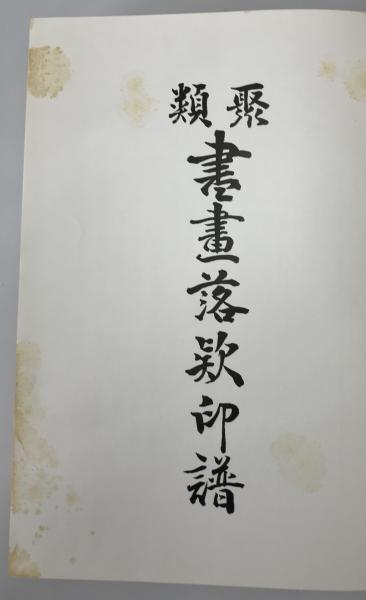 聚類
書畫落欵印譜